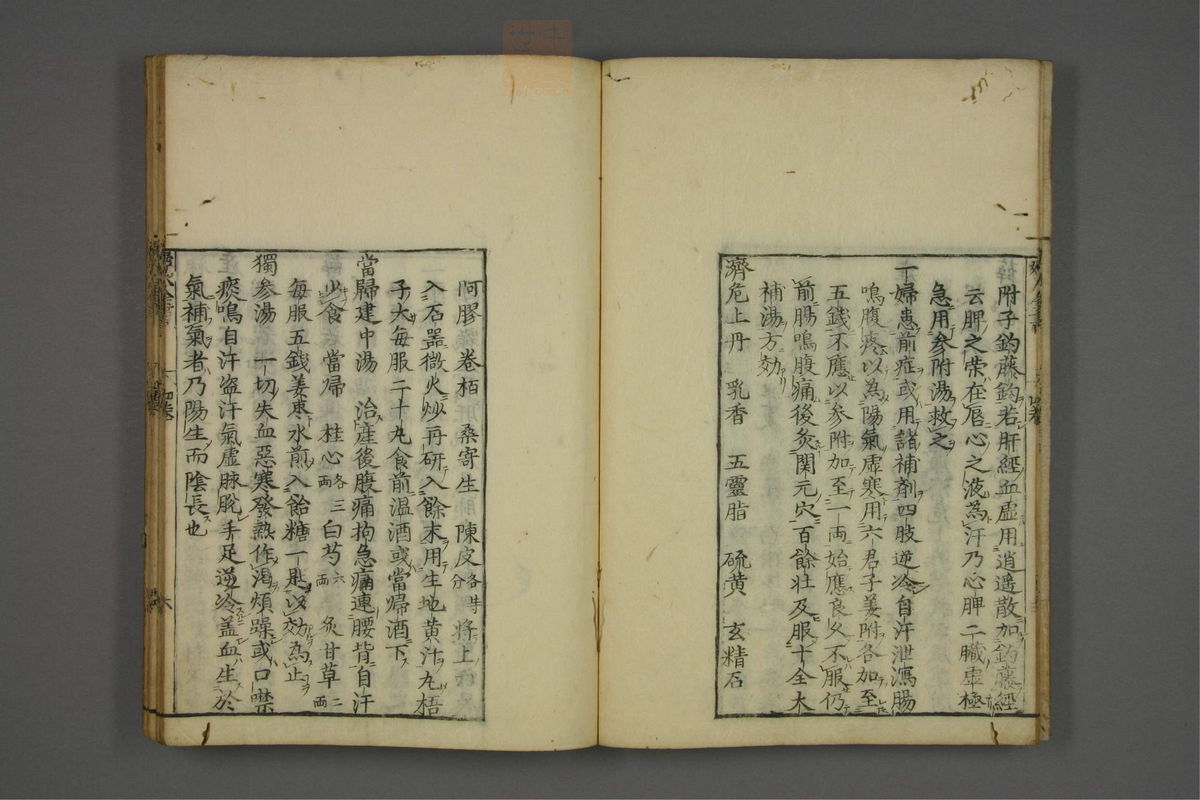 附子釣藤鈎若肝經血虛用逍遙散加釣藤經
云脾之荣在唇心之液為汗乃心脾二臓虛極
急用參附湯救之
一婦患前症或用諸補剤四肢逆冷自汗泄瀉腸
鳴腹疼以為陽氣虛寒用六君子姜附各加至
五錢不應以参附加至一両始應良久不服仍
前腸鳴腹痛後灸関元穴百餘壮及服十全大
補湯方効
濟危上丹 乳香 五靈脂 硫黄 玄精石
阿膠 卷栢 桑寄生 陳皮各等分 將上
入石噐微火炒再研入餘末用生地黄汁丸梧
子大每服二十丸食前温酒或當帰酒下
當歸建中湯 治産後腹痛拘急痛連腰背自汗
少食 當帰 桂心各三両 白芍六両 灸甘草二両
每服五錢姜枣水煎入飴糖一匙以効為止
獨参湯 一切失血惡寒發熱作渇煩躁或口噤
痰鳴自汗盗汗氣虛脉脫手足逆冷盖血生於
氣補氣者乃陽生而陰長也